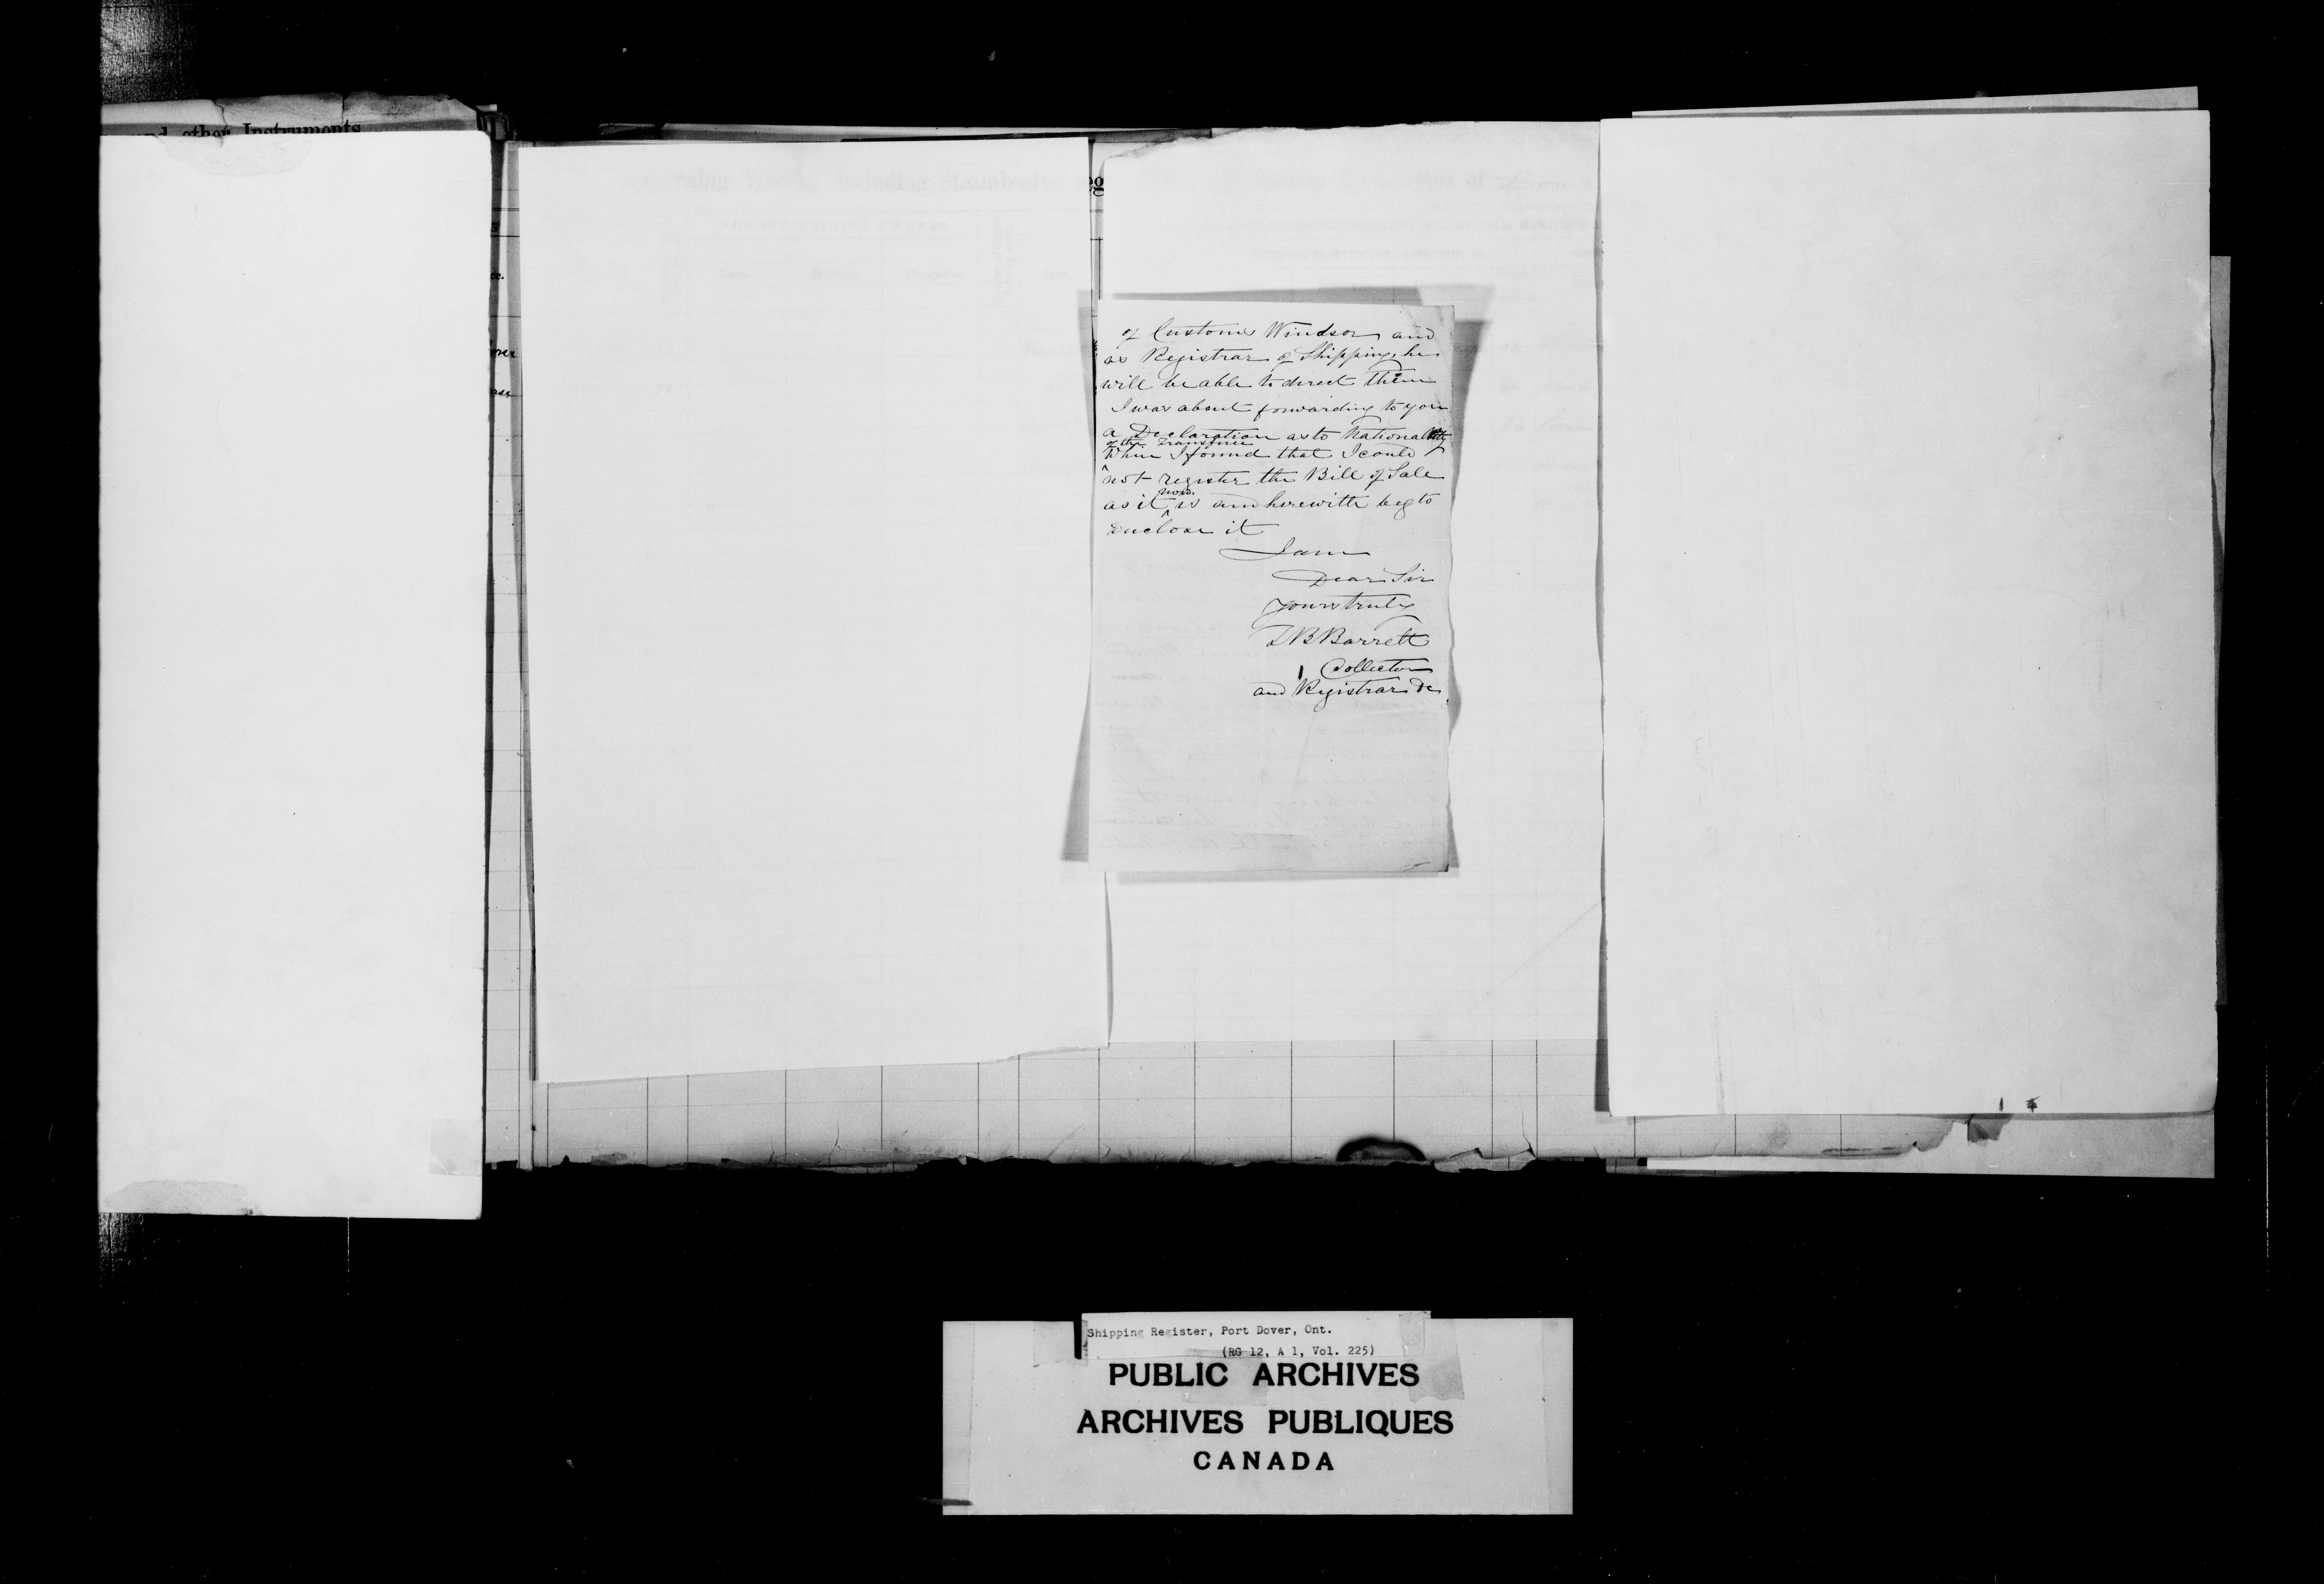 and other Instruments
of Customs Windsor and
as Registrar of Shipping, he
will be able to direct them
I was about forwarding to you
a Declaration as to Nationality
of the Transferee
When I found that I could
not register the Bill of Sale
now
as it is and herewith beg to
enclose it
I am
Dear Sir
Yours truly
T B Barrett
Collector
and Registrar &c
Shipping Register, Port Dover, Ont.
(RG 12, A 1, Vol. 225)
PUBLIC ARCHIVES
ARCHIVES PUBLIQUES
CANADA